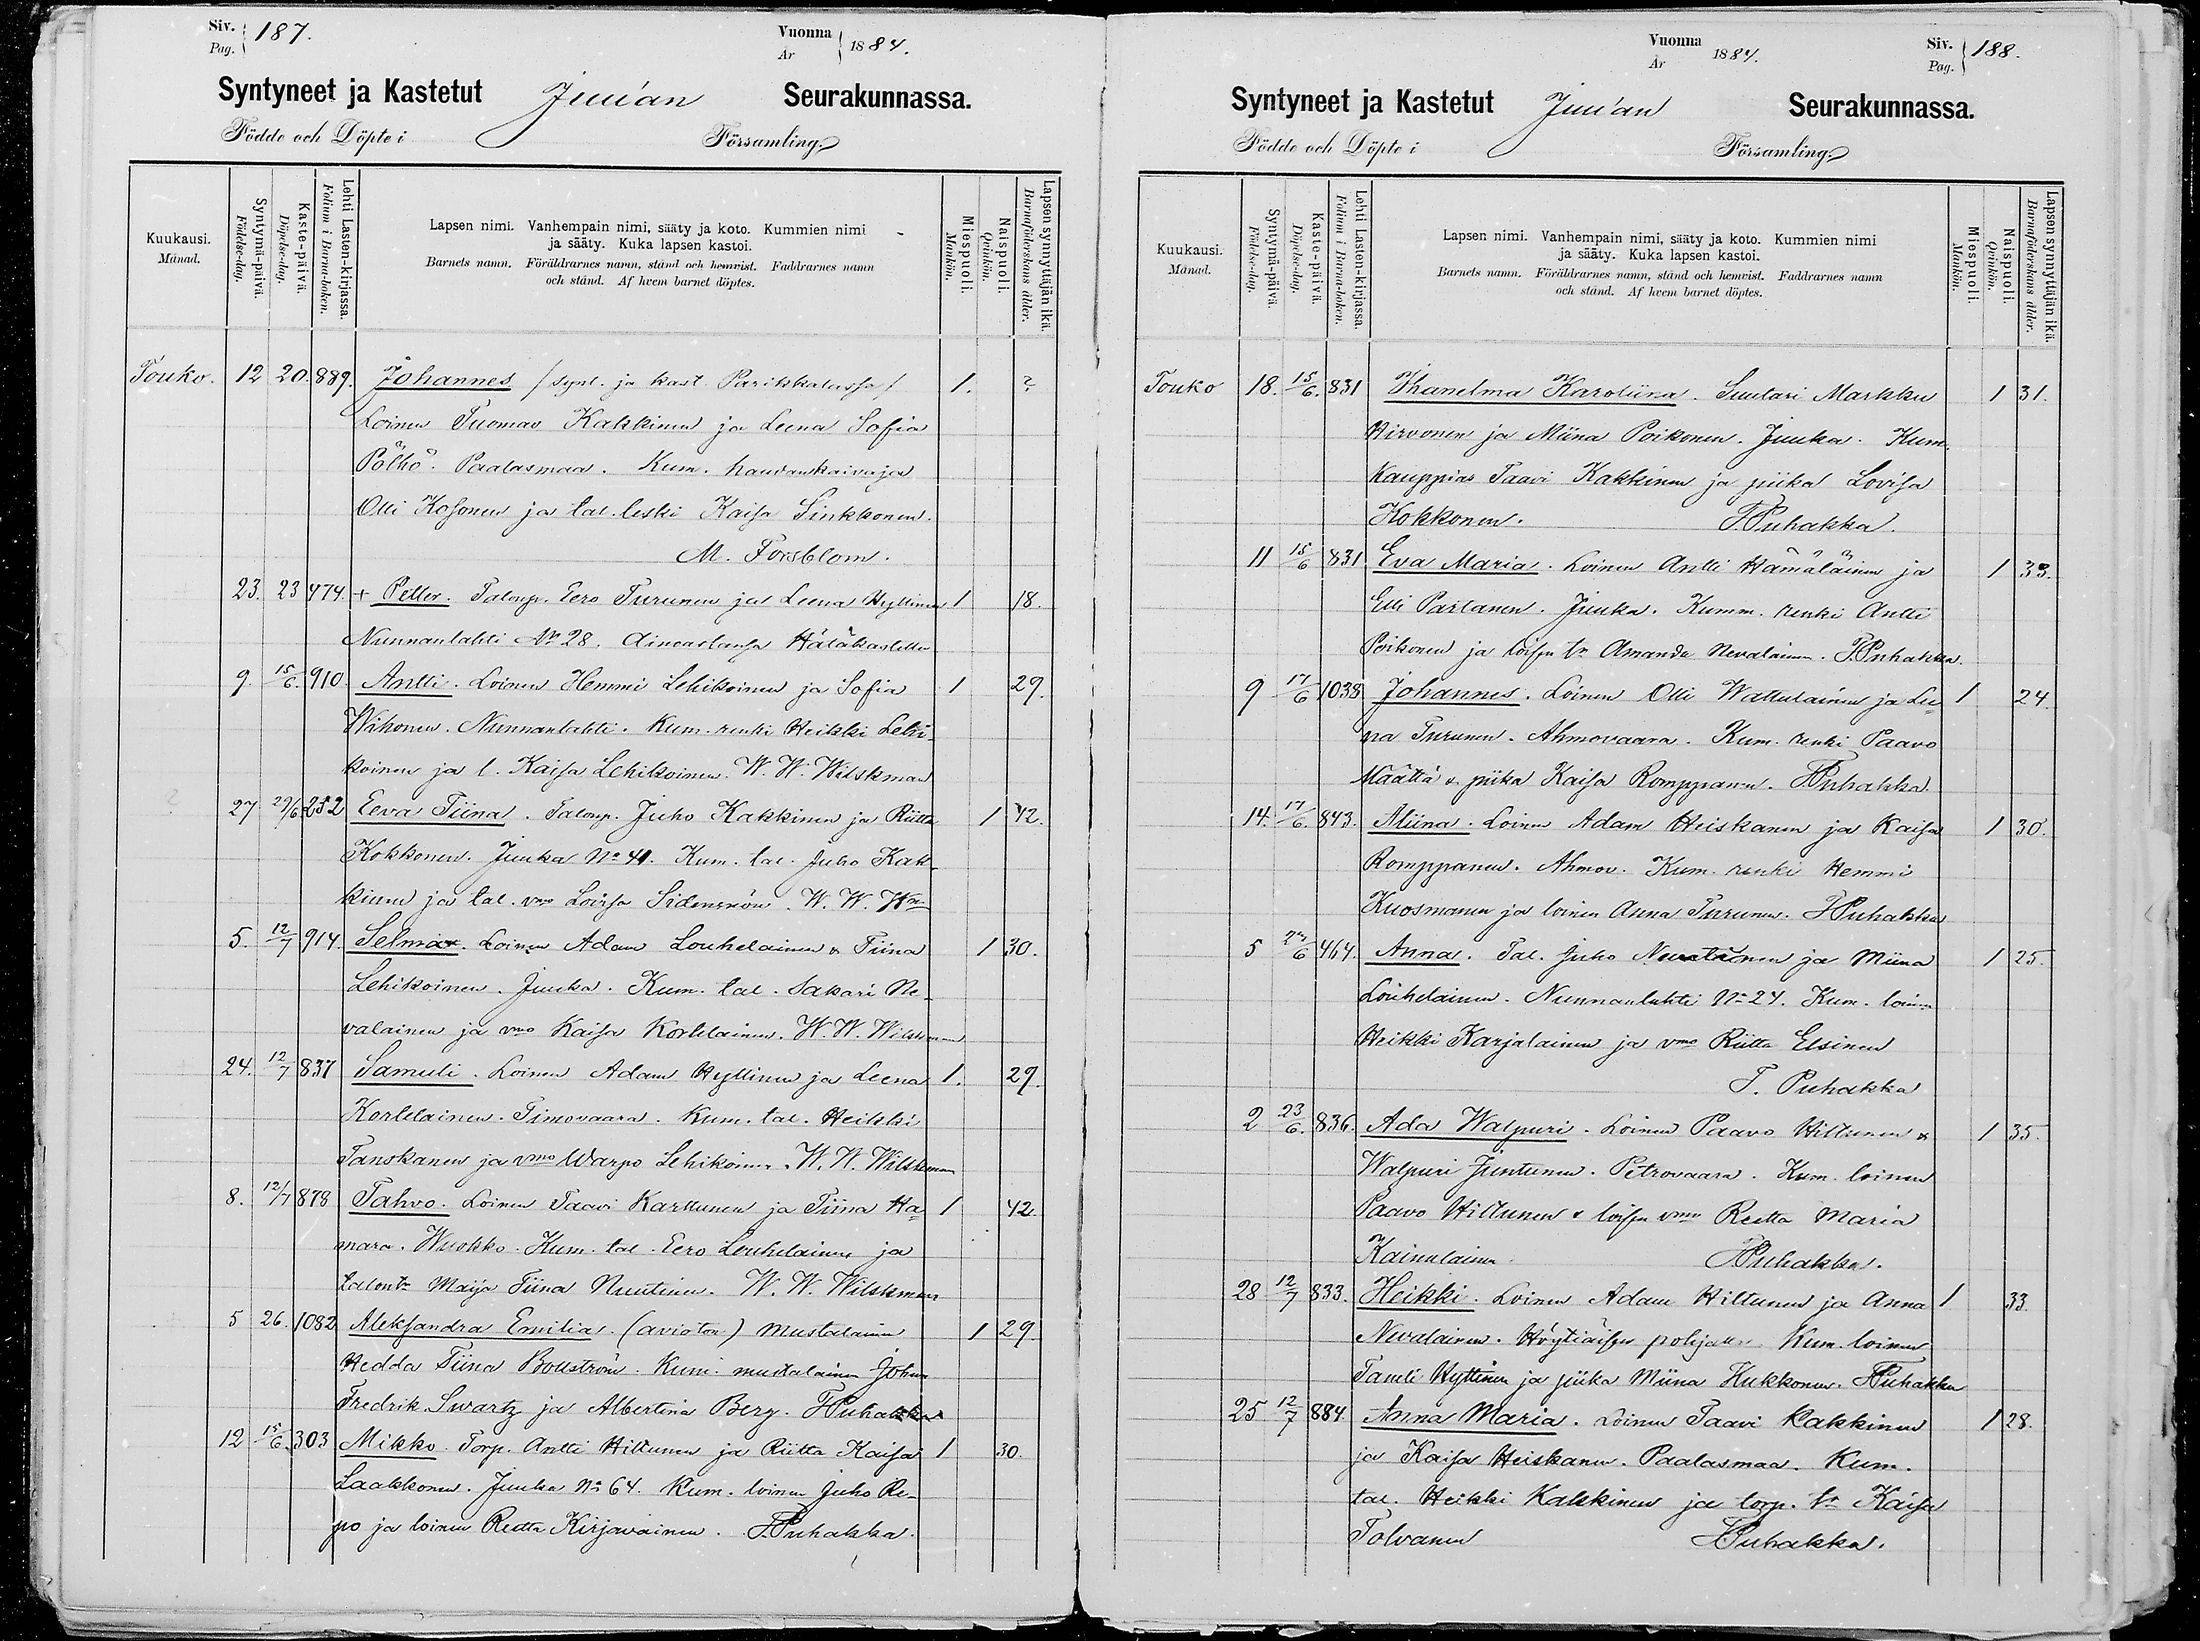 Siv. 187.
Pag.
Vuonna 1884.
År
Syntyneet ja Kastetut Juuan Seurakunnassa.
Födde och Döpte i Församling.
Kuukausi.
Månad.
Syntymä-päivä.
Födelse-dag.
Kaste-päivä.
Döpelse-dag.
Lehti Lasten-kirjassa.
Folium i Barna-boken.
Lapsen nimi. Vanhempain nimi, sääty ja koto. Kummien nimi
ja sääty. Kuka lapsen kastoi.
Barnets namn. Föräldrarnes namn, stånd och hemvist. Faddrarnes namn
och stånd. Af hvem barnet döptes.
Miespuoli.
Mankön.
Naispuoli.
Qvinkön.
Lapsen synnyttäjän ikä.
Barnaföderskans ålder.
Touko. 12 20. 889. Johannes / synt. ja kast. Parikkalassa / 1. ?
Loinen Tuomas Kakkinen ja Leena Sofia
Pölhö. Paalasmaa. Kum. haudankaivaja
Olli Kosonen ja tal. leski Kaisa Sinkkonen.
M. Forsblom.
23. 23 474. + Petter. Talonp. Eero Turunen ja Leena Hyttinen 1 18.
Nunnanlahti No 28. Hätäkastettu
9. 15/6. 910. Antti. Loinen Hemmi Lehikoinen ja Sofia 1 29.
Wihonen. Nunnanlahti. Kum. renki Heikki Lehi-
koinen ja l. Kaisa Lehikoinen. W. W. Wilskman
27 29/6 252 Eeva Tiina. Talonp. Juho Kakkinen ja Riitta 1 42.
Kokkonen. Juuka No 41. Kum. tal. Juho Kak-
kinen ja tal. vmo Loviisa Sidensnöre. W. W. Wn.
5. 12/7 914. Selma. Loinen Adam Louhelainen & Tiina 1 30.
Lehikoinen. Juuka. Kum. tal. Sakari Ne-
valainen ja vmo Kaisa Kortelainen. W. W. Wilskman
24. 12/7 837 Samuli. Loinen Adam Hyttinen ja Leena 1. 29.
Kortelainen. Timovaara. Kum. tal. Heikki
Tanskanen ja vmo Warpo Lehikoinen. W. W. Wilskman
8. 12/7 878 Tahvo. Loinen Taavi Karttunen ja Tiina Ha- 1 42.
mara. Wuokko. Kum. tal. Eero Louhelainen ja
talontr Maija Tiina Nuutinen. W. W. Wilskman
5 26. 1082 Aleksandra Emilia. (aviotoin) mustalainen 1 29.
Hedda Tiina Bollström. Kum. mustalainen Johan
Fredrik Swartz ja Albertina Berg. T. Puhakka
12 15/6. 303 Mikko. Torp. Antti Hiltunen ja Riitta Kaisa 1 30.
Laakkonen. Juuka No 64. Kum. loinen Juho Re-
po ja loinen Reetta Kirjavainen. T. Puhakka.
Vuonna 1884.
År
Siv. 188.
Pag.
Syntyneet ja Kastetut Juuan Seurakunnassa.
Födde och Döpte i Församling.
Kuukausi.
Månad.
Syntymä-päivä.
Födelse-dag.
Kaste-päivä.
Döpelse-dag.
Lehti Lasten-kirjassa.
Folium i Barna-boken.
Lapsen nimi. Vanhempain nimi, sääty ja koto. Kummien nimi
ja sääty. Kuka lapsen kastoi.
Barnets namn. Föräldrarnes namn, stånd och hemvist. Faddrarnes namn
och stånd. Af hvem barnet döptes.
Miespuoli.
Mankön.
Naispuoli.
Qvinkön.
Lapsen synnyttäjän ikä.
Barnaföderskans ålder.
Touko 18. 15/6. 831 Ihanelma Karoliina. Suutari Markku 1 31.
Hirvonen ja Miina Poikonen. Juuka. Kum.
Kauppias Taavi Kakkinen ja piika Lovisa
Kokkonen. T. Puhakka.
11 15/6 831 Eva Maria. Loinen Antti Hämäläinen ja 1 33.
Elli Partanen. Juuka. Kumm. renki Antti
Poikonen ja loisen tr Amanda Nevalainen. T. Puhakka.
9 17/6 1038 Johannes. Loinen Olli Wattulainen ja Lee- 1 24.
na Turunen. Ahmovaara. Kum. renki Paavo
Määttä & piika Kaisa Romppanen. T. Puhakka.
14. 17/6. 843. Miina. Loinen Adam Heiskanen ja Kaisa 1 30.
Romppanen. Ahmov. Kum. renki Hemmi
Kuosmanen ja loinen Anna Turunen. T. Puhakka
5 464. Anna. Tal. Juho ja Miina 1 25.
Louhelainen. Nunnanlahti No 24. Kum. loinen
Heikki Karjalainen ja vmo Riitta Elsinen
T. Puhakka
2 23/6. 836. Ada Walpuri. Loinen Paavo Hiltunen & 1 35.
Walpuri Juntunen. Petrovaara. Kum. loinen
Paavo Hiltunen & loisen vmo Reetta Maria
Kainulainen T. Puhakka.
28 12/7 833. Heikki. Loinen Adam Hiltunen ja Anna 1 33.
Nevalainen. Höytiäisen Kum. loinen
Tauli Hyttinen ja piika Miina Hukkonen. T. Puhakka
25 12/7 884. Anna Maria. Loinen Taavi Kakkinen 1 28.
ja Kaisa Heiskanen. Paalasmaa. Kum.
tal. Heikki Kakkinen ja torp. tr Kaisa
Tolvanen T. Puhakka.